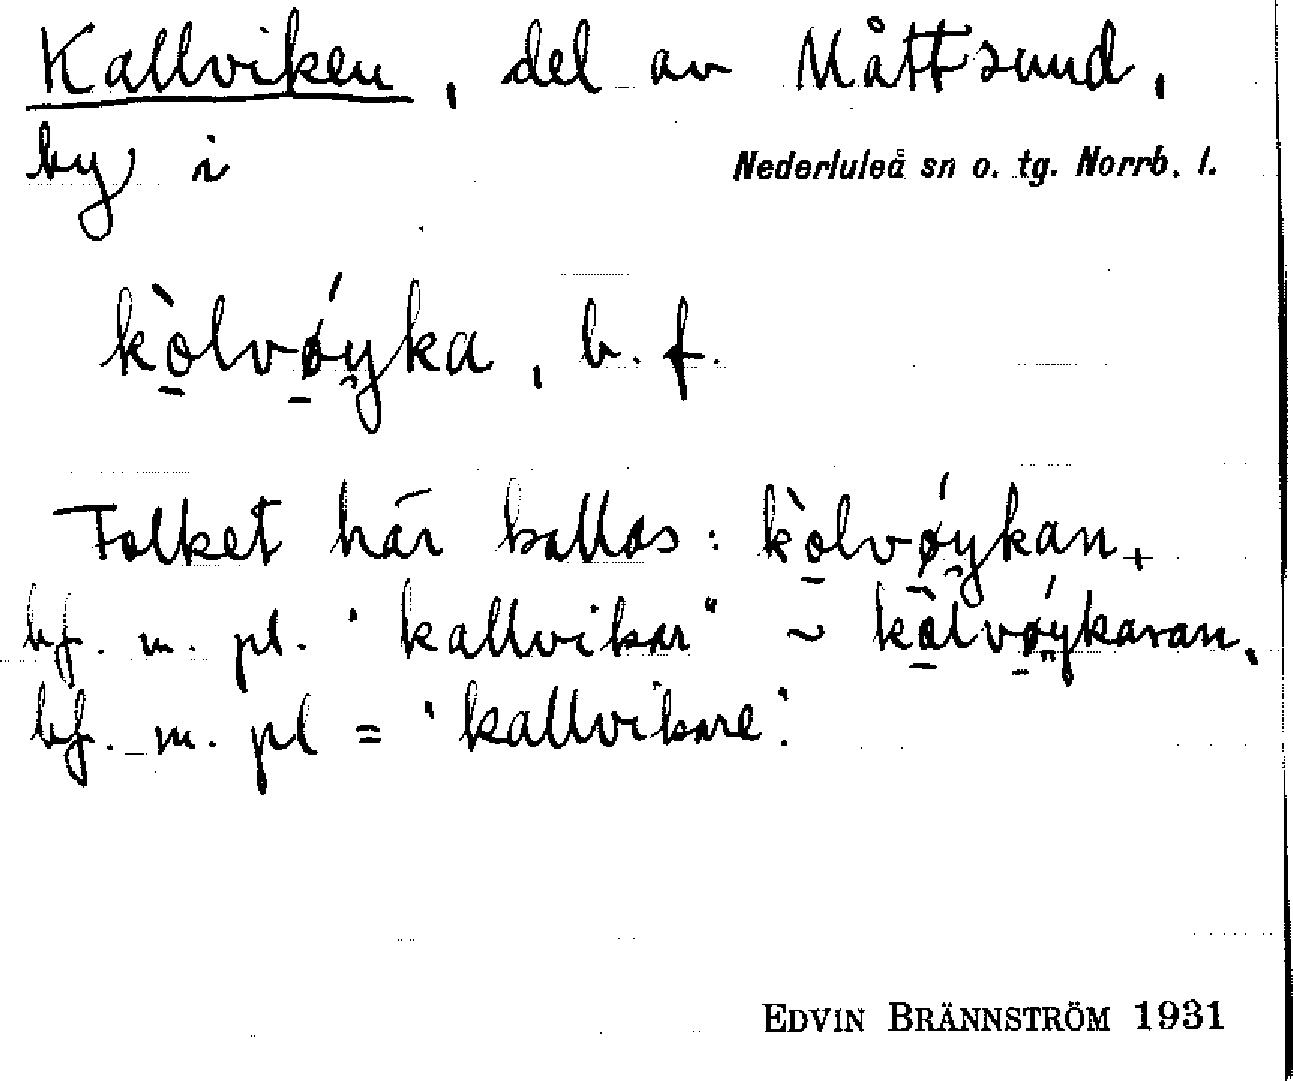 Kallviken, del av Måttsund,
by i Nederluleå sn o. tg. Norrb. l.
kò̠lvǿ̠y̯ka, b. f.
Folket här kallas: kò̠lvǿ̠y̯kan,
bf. m. pl. "kallvikar" ~ kò̠lvǿ̠y̯karan,
bf. m. pl = 'kallvikare'.
EDVIN BRÄNNSTRÖM 1931